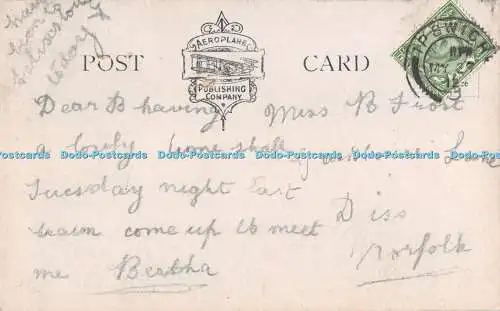 having
today
AEROPLANE
POST CARD
PUBLISHING
COMPANY
IPSWICH
Dear B having
a lovely time shall
Tuesday night last
train come up to meet
me Bertha
Miss B Frost
Lane
Diss
Norfolk
Dodo-Postcards Dodo-Postcards Dodo-Postcards Dodo-Postcards Dodo-Postcards